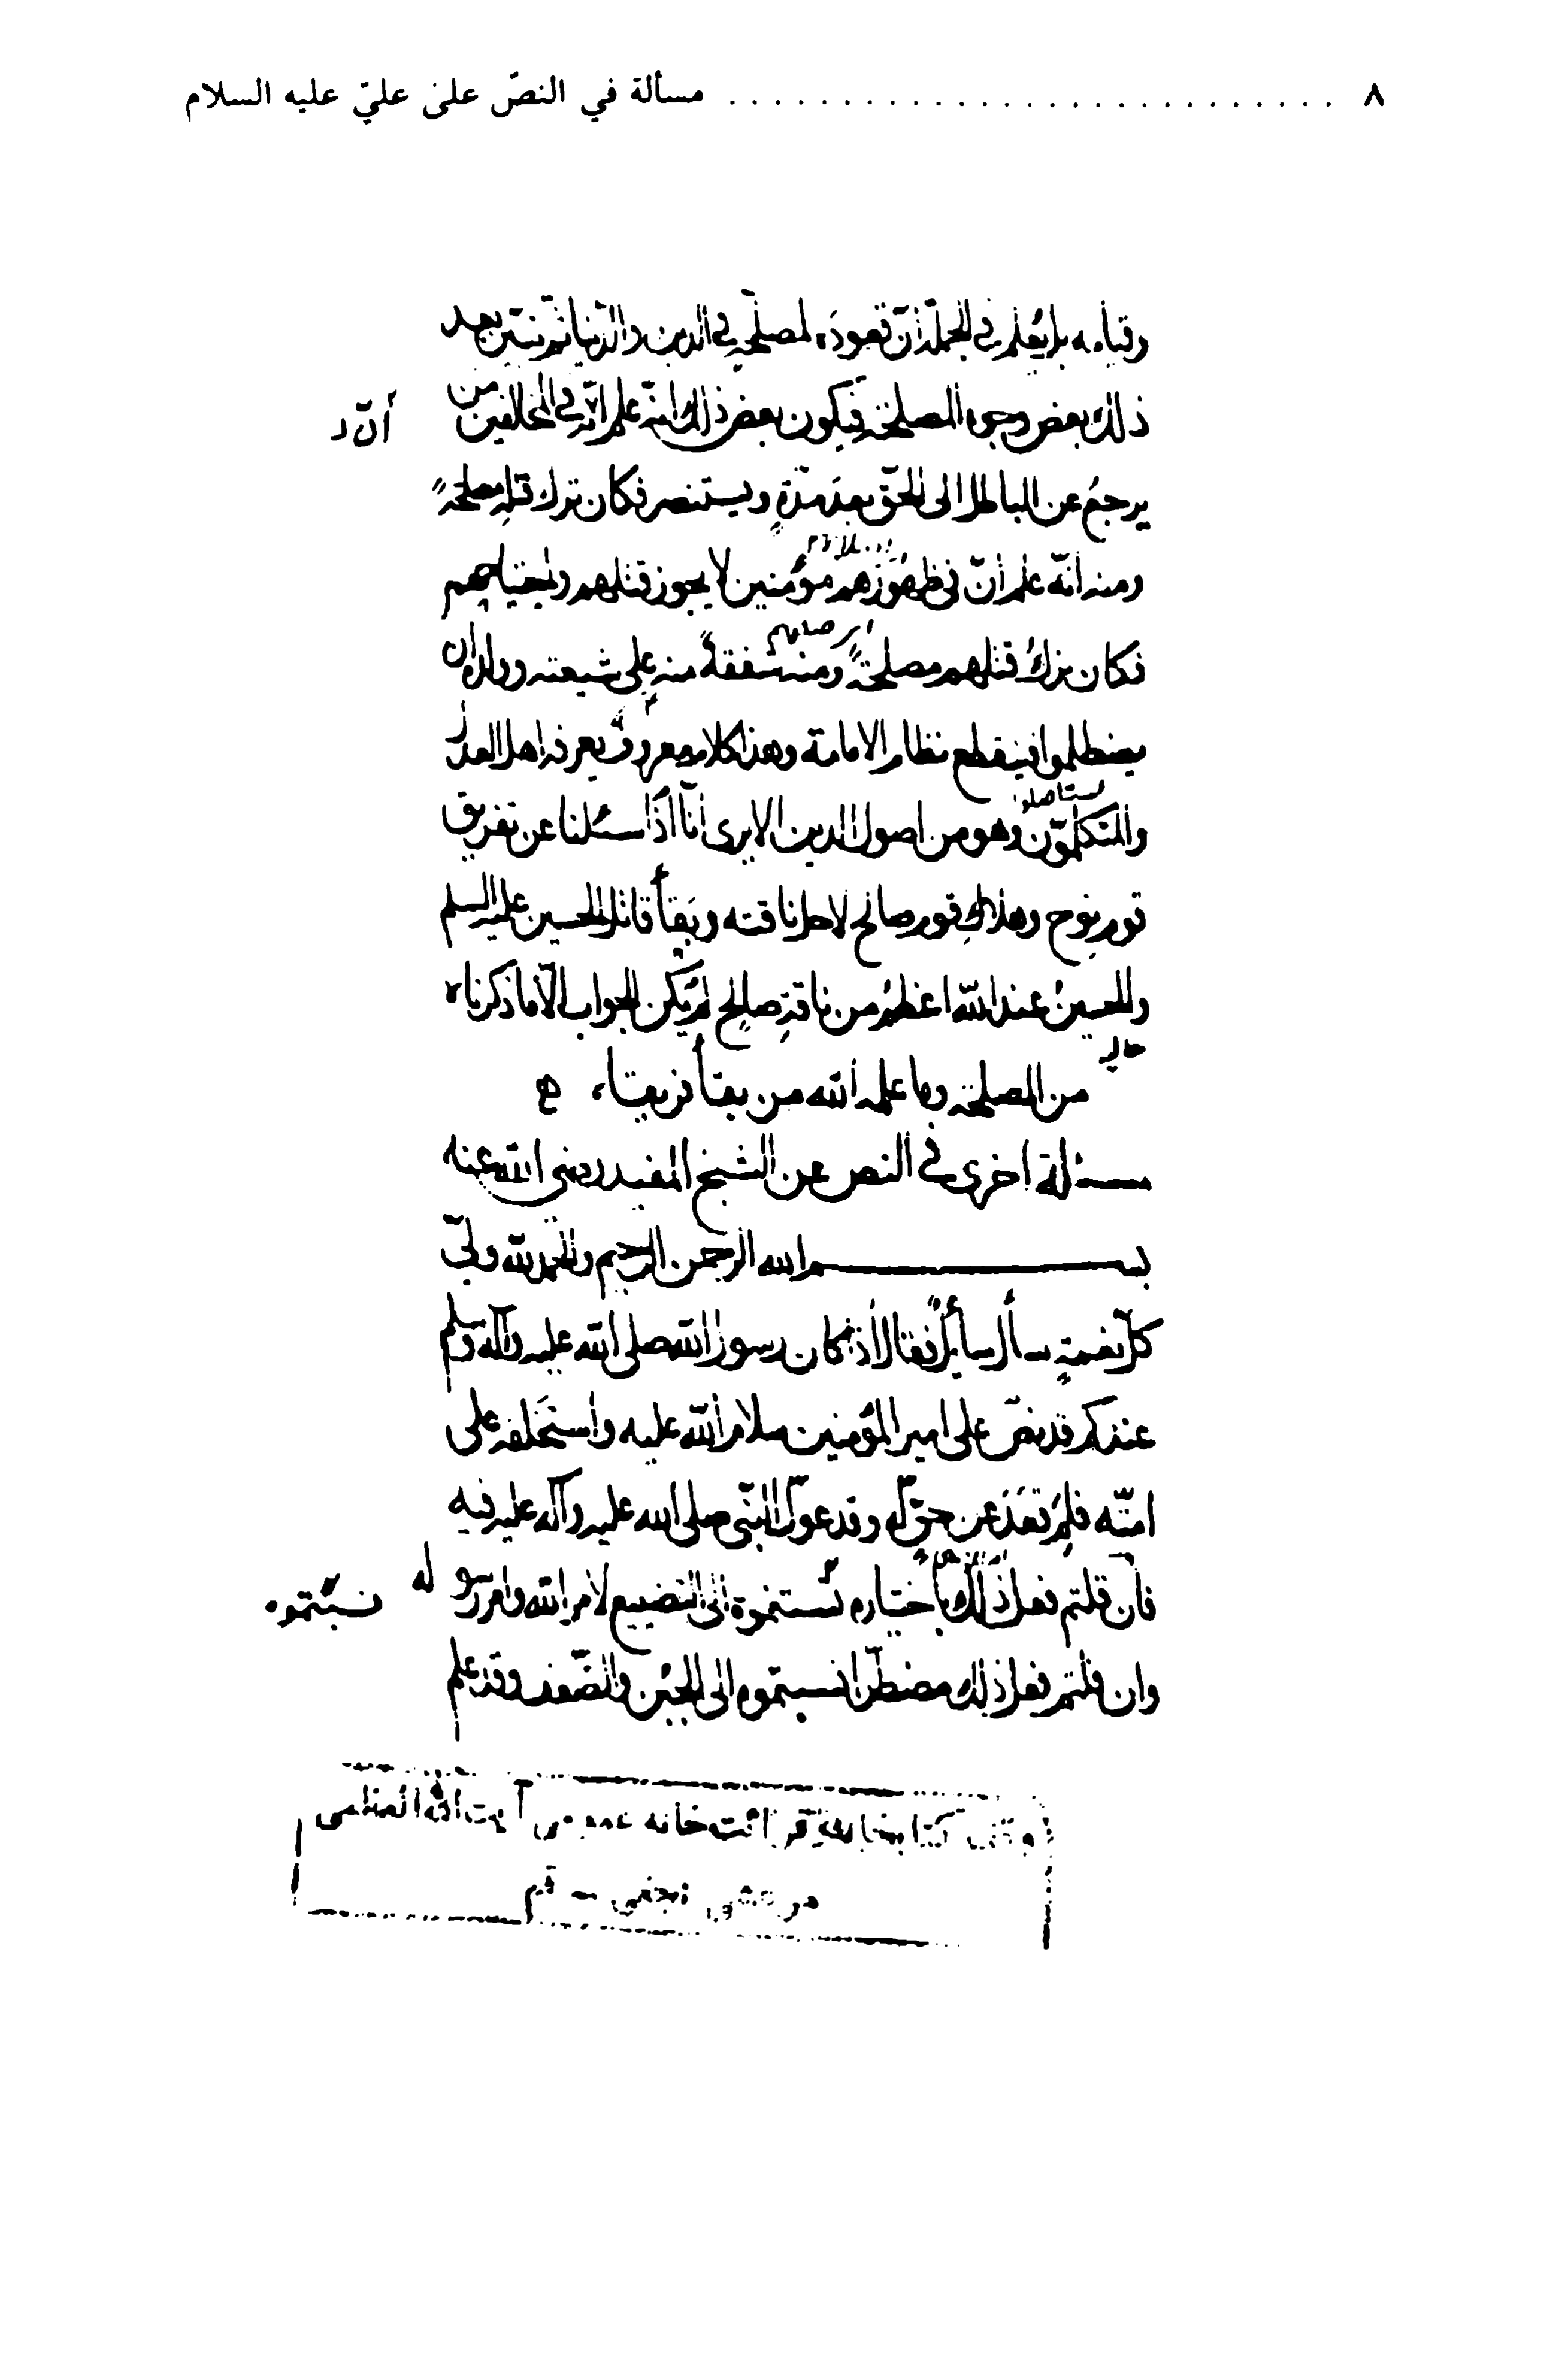 ٨ . . . . . . . . . . . . . . . . . . . . . . . . . . . مسألة في النصّ على عليّ عليه السلام
وقيامه بل يُعلم في الجملة أنّ قعوده لمصلحةٍ في الدين والدنيا ثم نبيّن بعد
ذلك بعض وجوه المصلحة فيكون بعض ذلك انّه علم انّ في المخالفين من
أنّ
يرجعُ عن الباطل الى الحقّ بعد مدّةٍ ويستنصر فكان ترك قتلِهِ مصلحةً
ومنه انّه علم انّ في ظهورهم مؤمنين لا يجوز قتلهم واجتياحهم
فكان تركُ قتلهم مصلحةً ومنه شفقةً منه على شيعته وولده ان
يصطلموا فينقطع نظام الامامة وهذا كلام معروف يعرفه اهل العدل
والمتكلّمون وهو من اصول الدين الا يرى انّا اذا سئلنا عن تغريق
قوم نوح وهلاك قوم صالح لاجل ناقته وبقأ قاتل الحسين عليه السلم
وللحسينُ عند الله اعظمُ من ناقةِ صالحٍ لم يكن الجواب الّا ما ذكرناه
من المصلحة وما علمه الله من بقأ من بقاه
مسئلة اخرى في النص عن الشيخ المفيد رضى الله عنه
بسم الله الرحمن الرحيم والحمد لله وليّ
كلّ نعمةٍ سأل سأيلٌ فقال اذا كان رسول الله صلى الله عليه وآله وسلم
عندكم قد نصّ على امير المؤمنين سلام الله عليه واستخلفه على
امّته فلِمَ قعَدَ عن حقّ له وقد عوّل النبّى صلى الله عليه وآله عليه فيه
فأن قلتم فعل ذلك بأختياره نسبتموه الى التضييع لأمر الله وامر رسوله
نسبتموه
وان قلتم فعل ذلك مضطرا نسبتموه الى الجبن والضّعف وقد علم
وقف كتابخانه و قرائت خانه عمومى آيت الله العظمى
مرعشى نجفى - قم